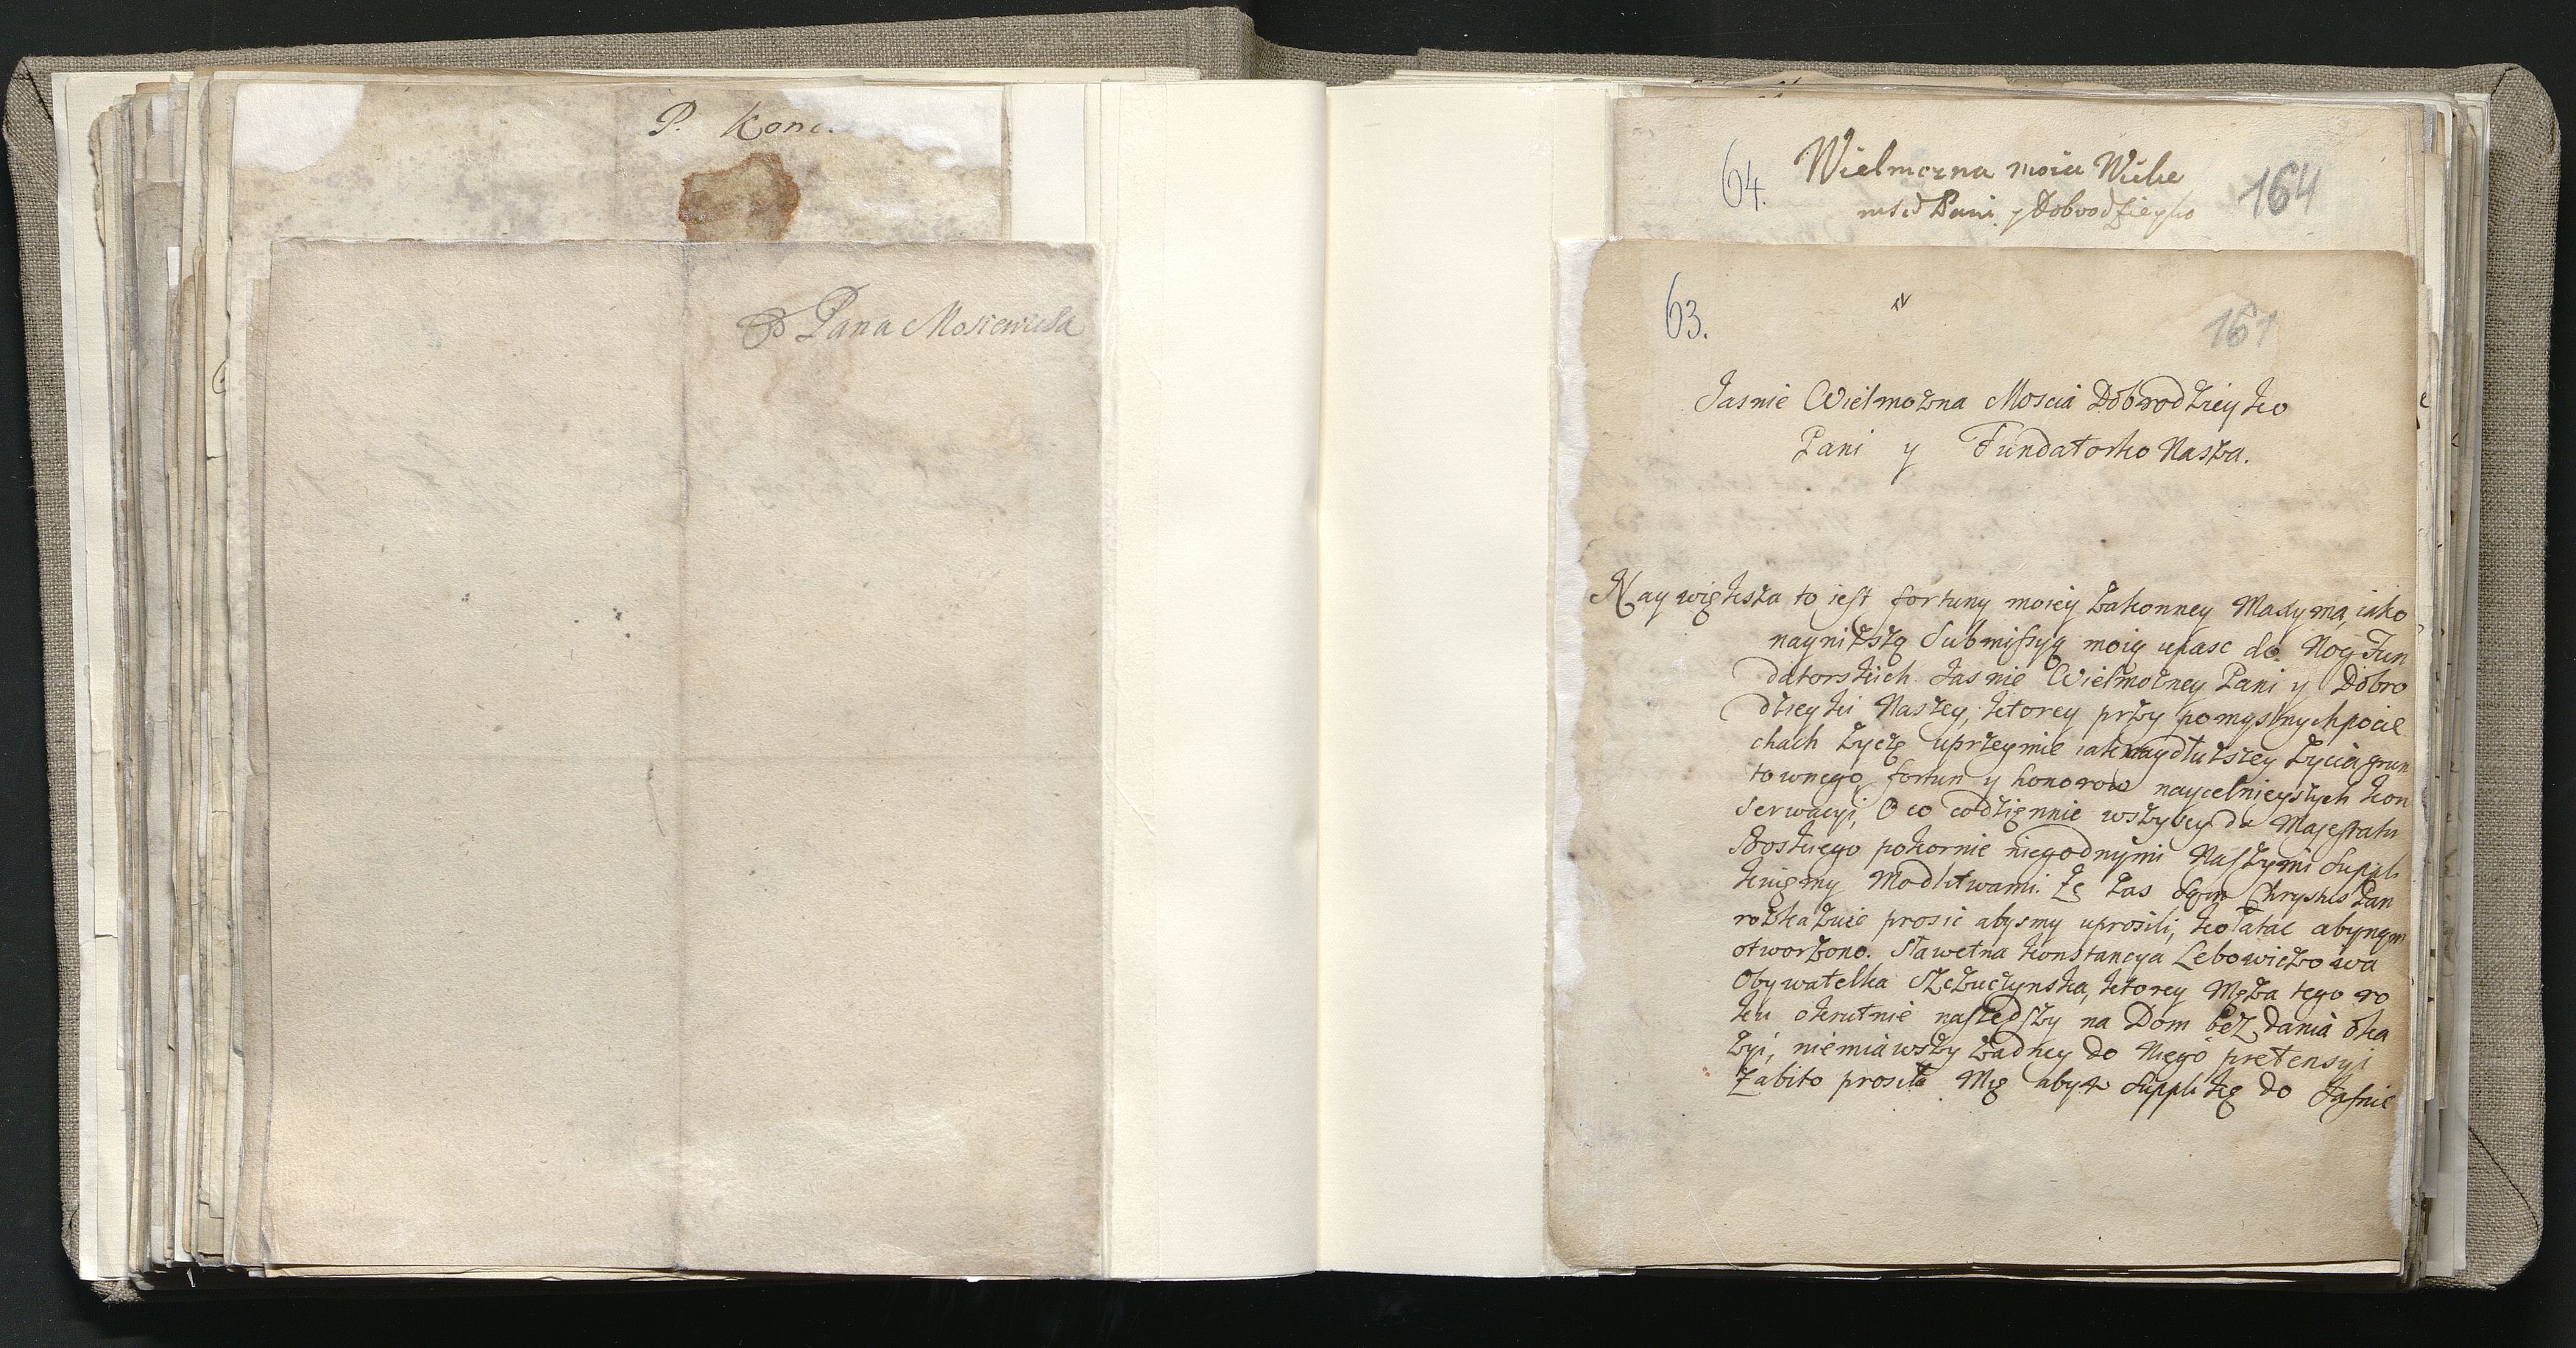 P. Konc.
Pana Mosiewicza
64. Wielmozna moia Wielce 164
Pani y Dobrodzieyko
63. 161
Jasnie Wielmożna Moscia Dobrodzieyko
Pani y Fundatorko Nasza.
Naywiększa to iest fortuny moiey zakonney Maxyma, iako
nayniższą Submissyą moią upasc do Nog Fun
datorskich Jasnie Wielmożney Pani y Dobro
dzieyki Naszey, ktorey przy pomyslnych pocie
chach życzę uprzeymie iak naydłuższey życia grun
townego, fortun y honorow naycelnieyszych kon
serwacyi, O co codziennie wszyscy do Majestatu
Boskiego pokornie niegodnymi Naszymi Suppli
kuiemy Modlitwami. Ze zas Sam Chrystus Pan
rozkazuie prosic abysmy uprosili, kołatac aby nam
otworzono. Sławetna Konstancya Lebowiczowa
Obywatelka Szczuczynska, ktorey Męża tego ro
ku okrutnie naszedszy na Dom bez dania oka
zyi, niemiawszy żadney do Niego pretensyi
zabito prosiła Mię abym Supplikę do Jasnie